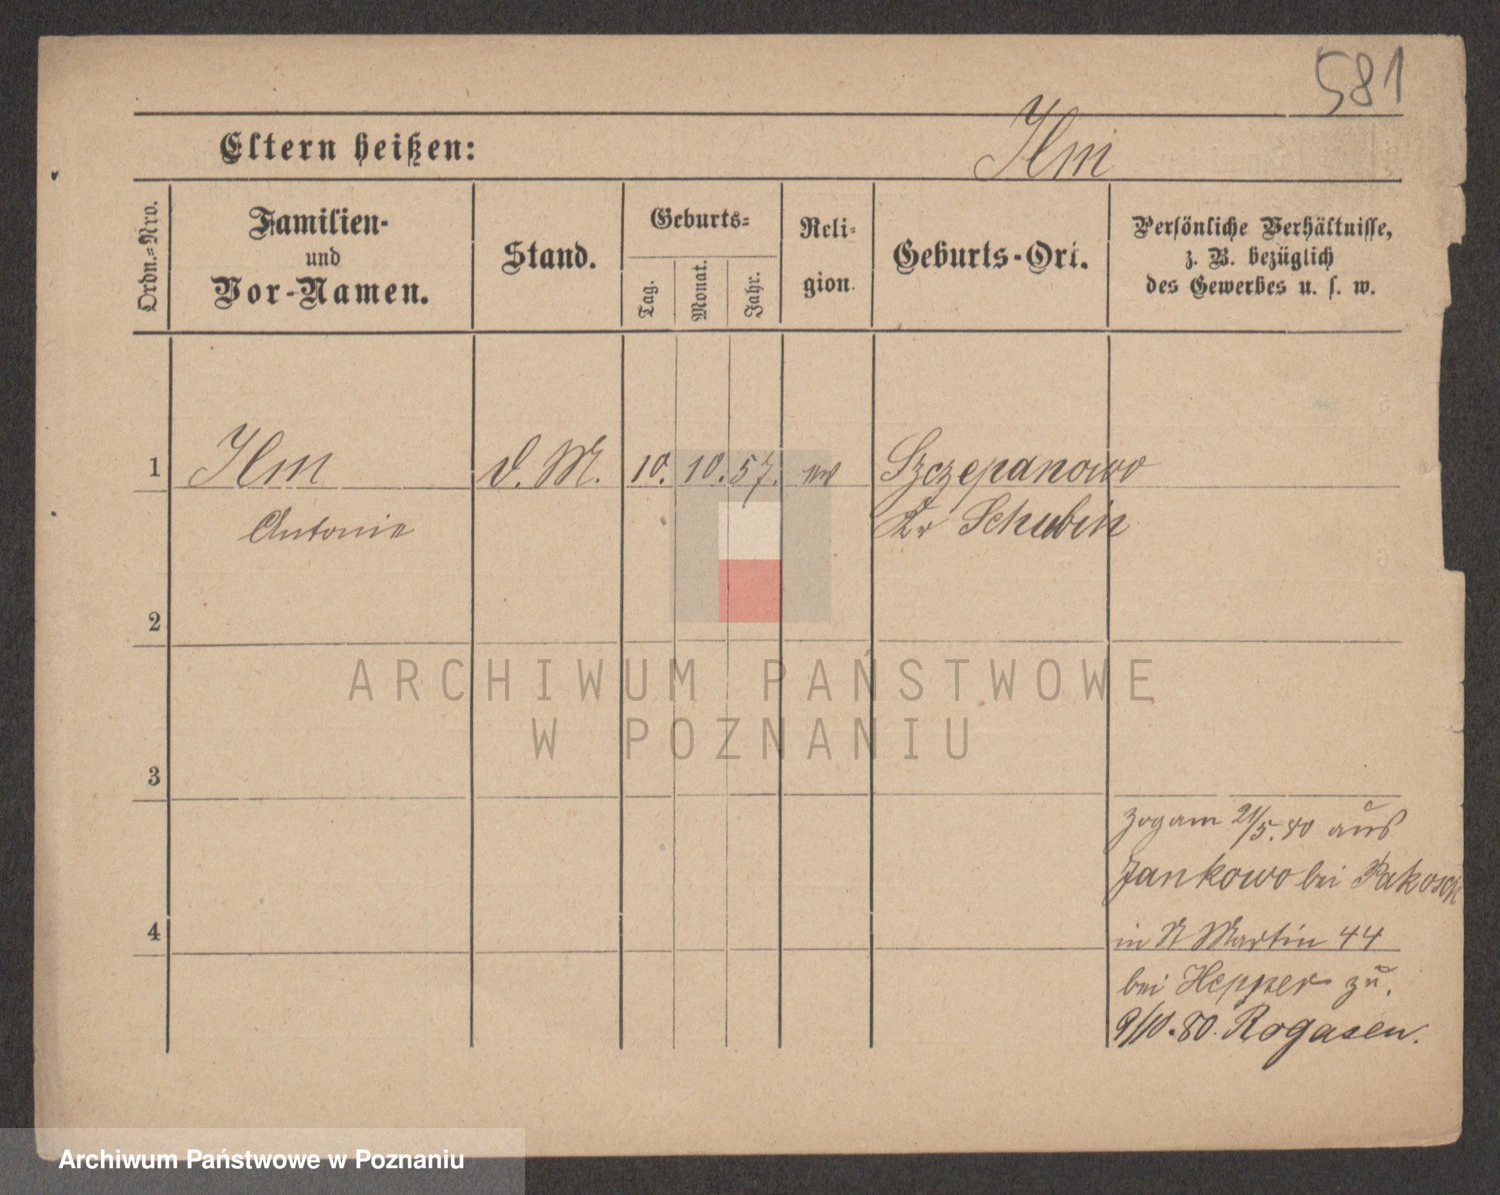 581
Eltern heißen:
Ilm
Ordn.=Nro.
Familien-
und
Vor-Namen.
Stand.
Geburts=
Tag.
Monat.
Jahr.
Reli=
gion.
Geburts-Ort.
Persönliche Verhältnisse,
z. B. bezüglich
des Gewerbes u. s. w.
1
Ilm
d. M.
10.
10.
57.
ev
Szczepanowo
Antonie
Kr Schubin
2
ARCHIWUM PAŃSTWOWE
W POZNANIU
3
zog am 21/5. 80 aus
Jankowo bei Pakosch
4
in St Martin 44
bei Hepper zu.
9/10. 80. Rogasen.
Archiwum Państwowe w Poznaniu